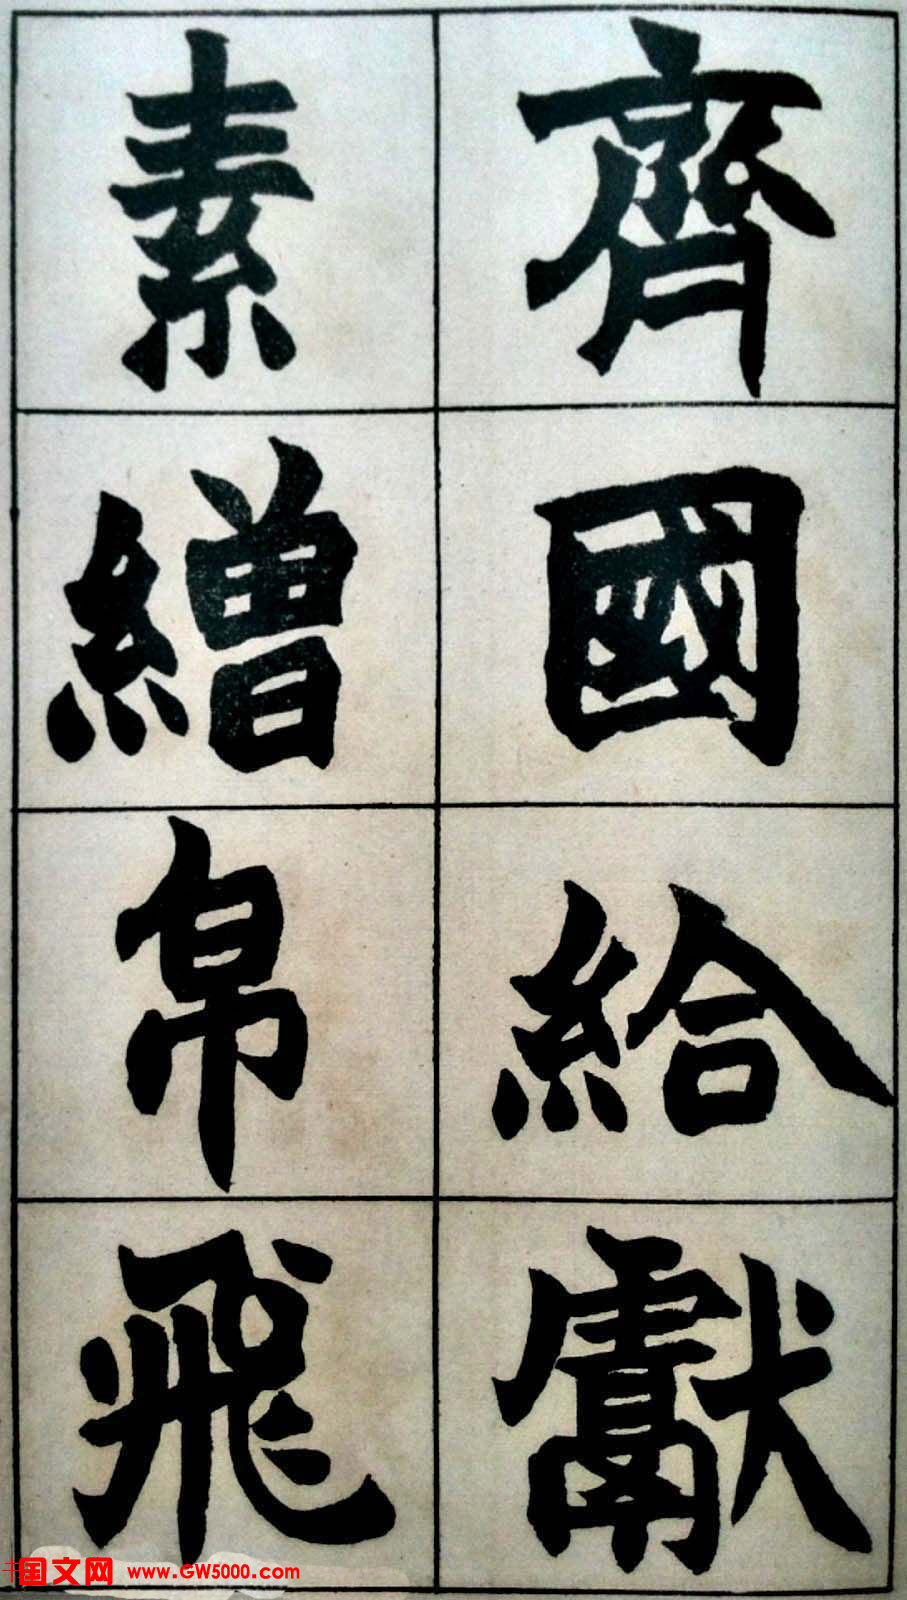 齊國給獻
素繒帛飛
国文网 www.GW5000.com